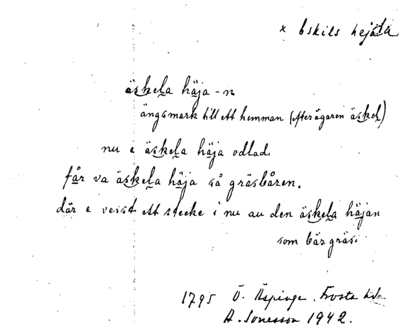 x Eskils hejata
äskela häja -n
ängsmark till ett hemman (efter ägaren äskel)
nu e äskela häja odlad.
får va äskela häja så gräsbåren.
där e veist ett stecke i nu au den äskela häjan
som bär gräs.
1795 Ö. Äspinge. Frosta hd.
A. Jonsson 1942.